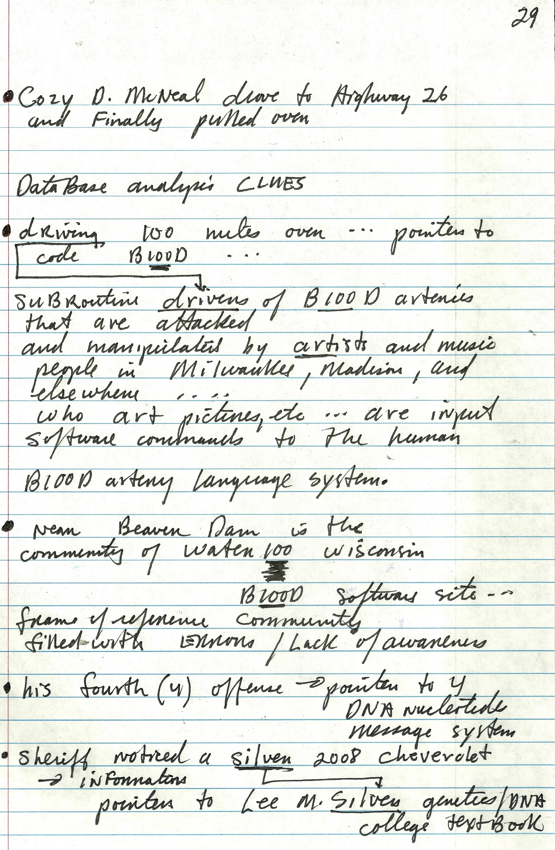 29
• Cozy D. McNeal drove to Highway 26
and Finally pulled over
DataBase analysis CLUES
• driving 100 miles over ... pointer to
code B100D ....
SUBRoutine drivers of B100D arteries
that are attacked
and manipulated by artists and music
people in Milwaukee, Madison, and
elsewhere .....
who art pictures, etc ... are input
software commands to the human
B100D artery language system.
• near Beaver Dam is the
community of Water 100 Wisconsin
B100D Software site ...
frame of reference community
filled with ERRORS / Lack of awareness
• his fourth (4) offense → pointer to 4
DNA nucleotides
message system
• Sheriff noticed a silver 2008 Cheverolet
→ information
pointer to Lee M. Silver genetics/DNA
college textBook